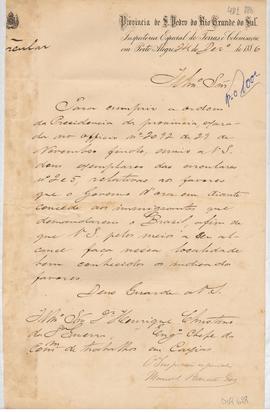 Provincia de S. Pedro do Rio Grande do Sul
Inspetoria Especial de Terras e Colonisação
em Porto Alegre 24 de Dezº de 1886
Circular
Illmº Snr.
Para cumprir a ordem
da Presidencia da provincia
no officio nº 2092 de 29 de
Novembro findo, envio a V.S.
dous exemplares das circulares
nº 2 e 5, relativas aos favores
que o Governo d'ora em diante
concede aos immigrantes que
demandarem o Brasil, afim de
que V.S. pelos meios a seu al-
cance faça nessa localidade
bem conhecidos os
favores.
Deus Guarde a V.S.
Illmº Snr. Dr. Henrique Christino
da Sª Guerra, Engº Chefe da
Comm de trabalhos em Caxias
O Inspector especial
Manoel